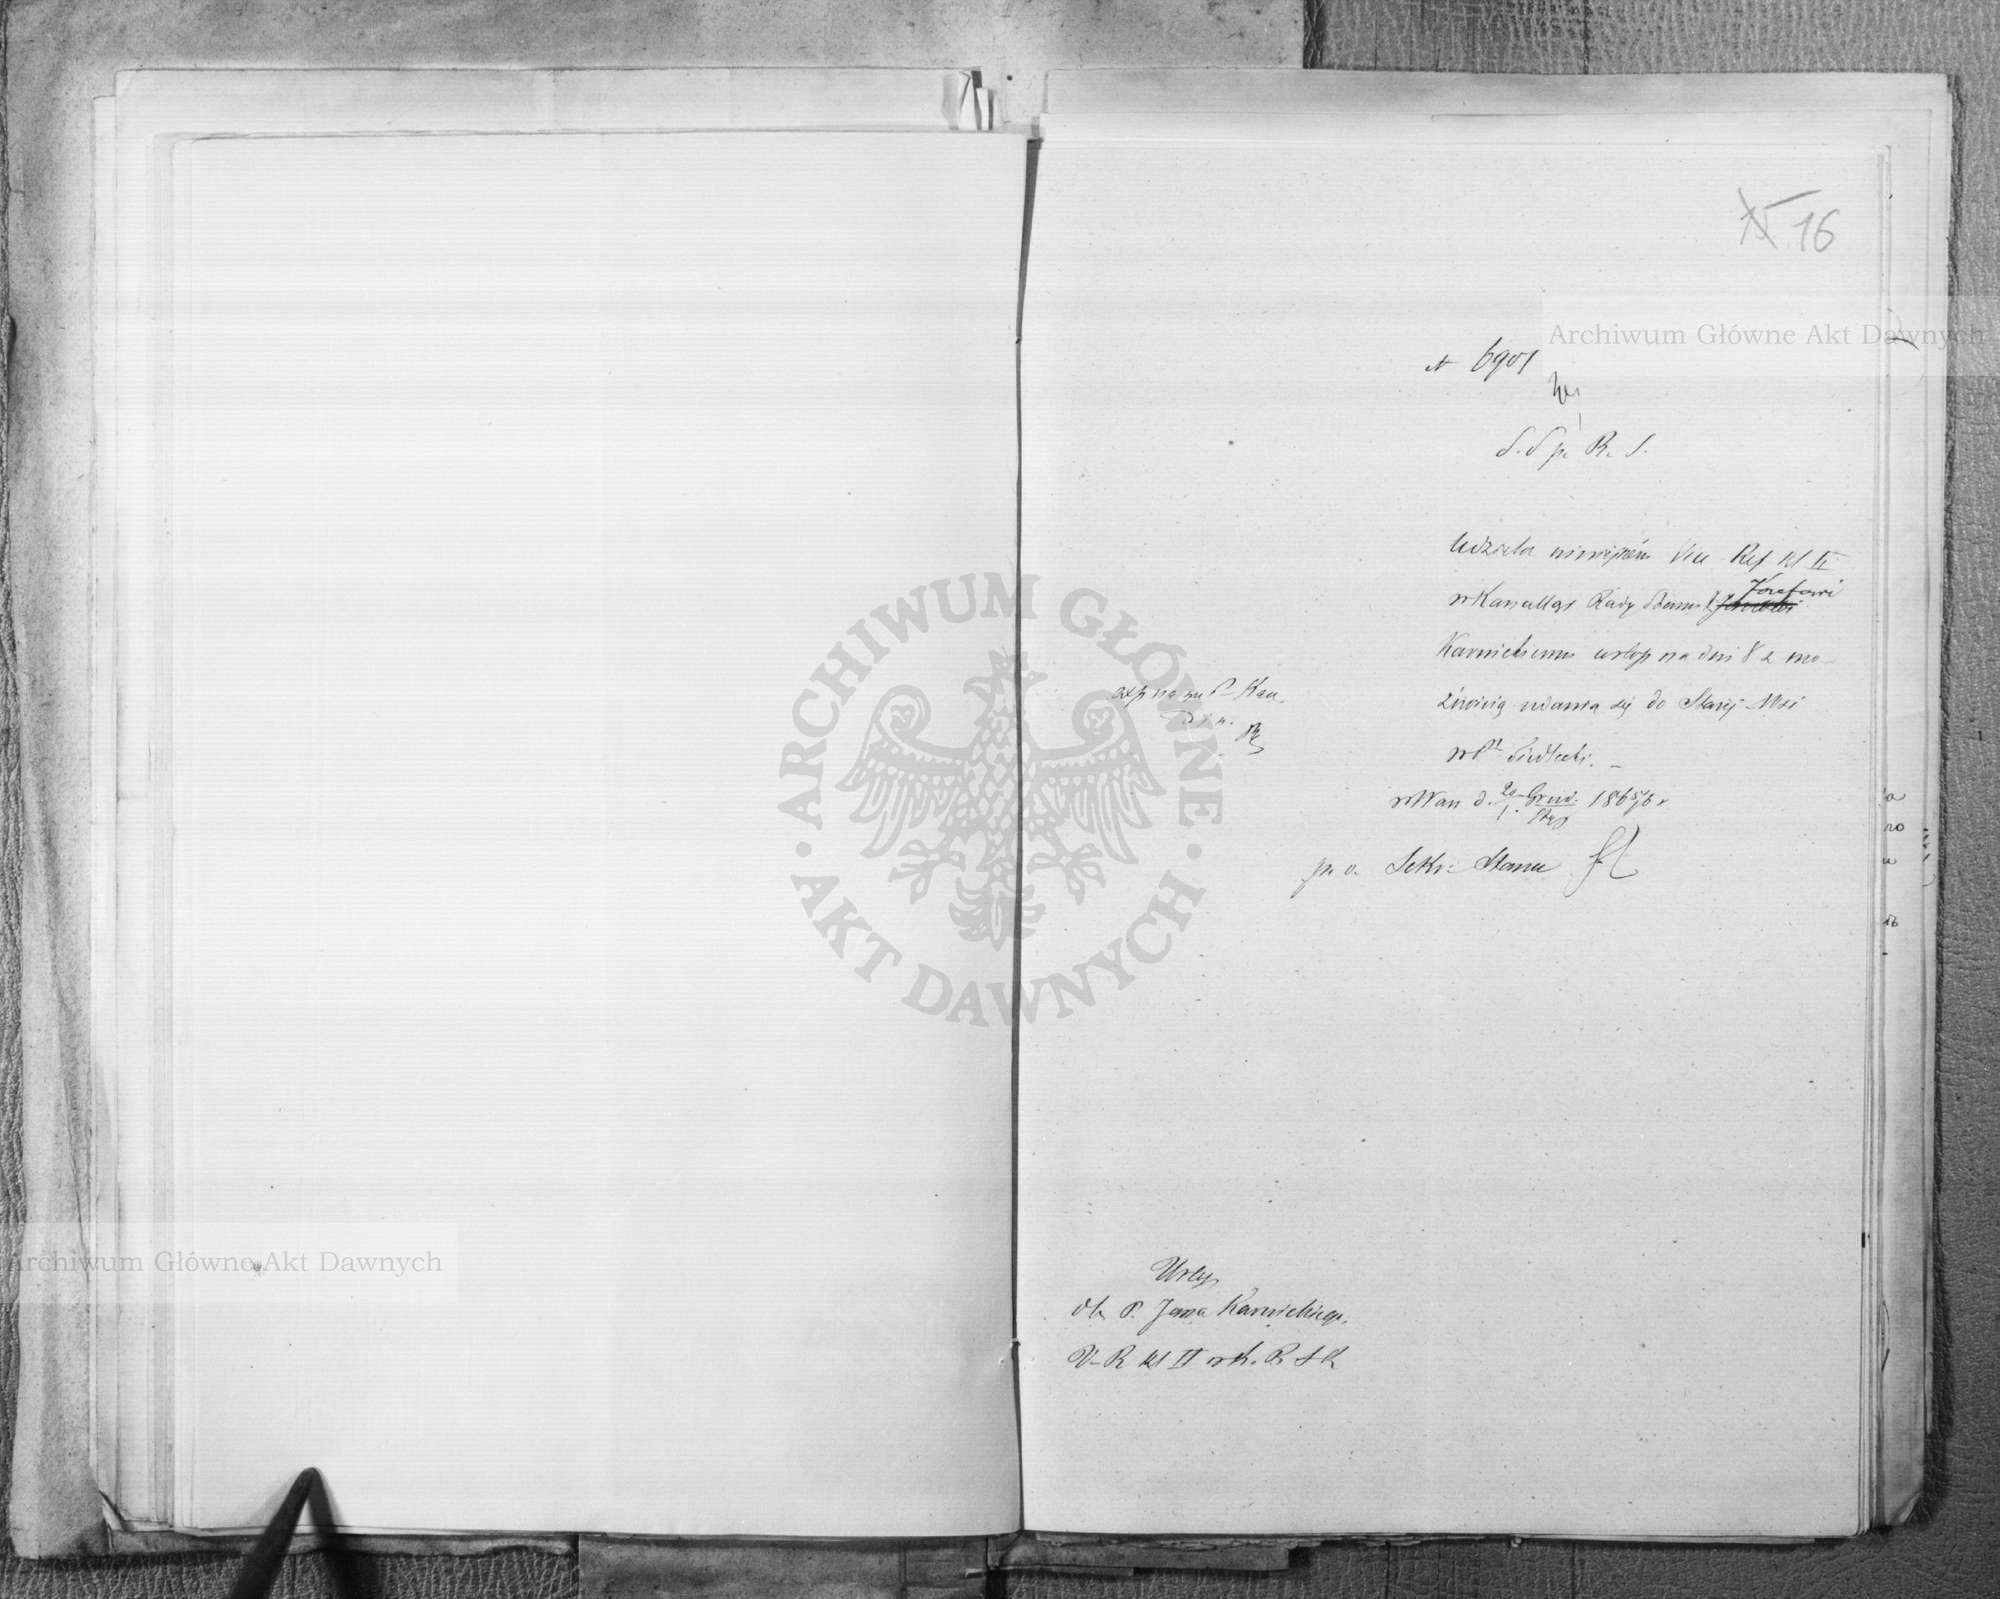 16
Archiwum Główne Akt Dawnych
N 6901
S. S p. R. S.
Udziela niniejszém Vice-Ref kl II
w Kancellaryi Rady Stanu P. Józefowi
Karnickiemu urlop na dni 8 z mo-
żnością udania się do Starej-Wsi
w Pt Siedlecki. –
w War d. 20 Grud. / 1. Stycz 1865/6 r
p. o. Sekr: Stanu
exp na
ARCHIWUM GŁÓWNE
AKT DAWNYCH
Archiwum Główne Akt Dawnych
Urlop
dla P. Jana Karnickiego.
V-R kl II w k. R S K